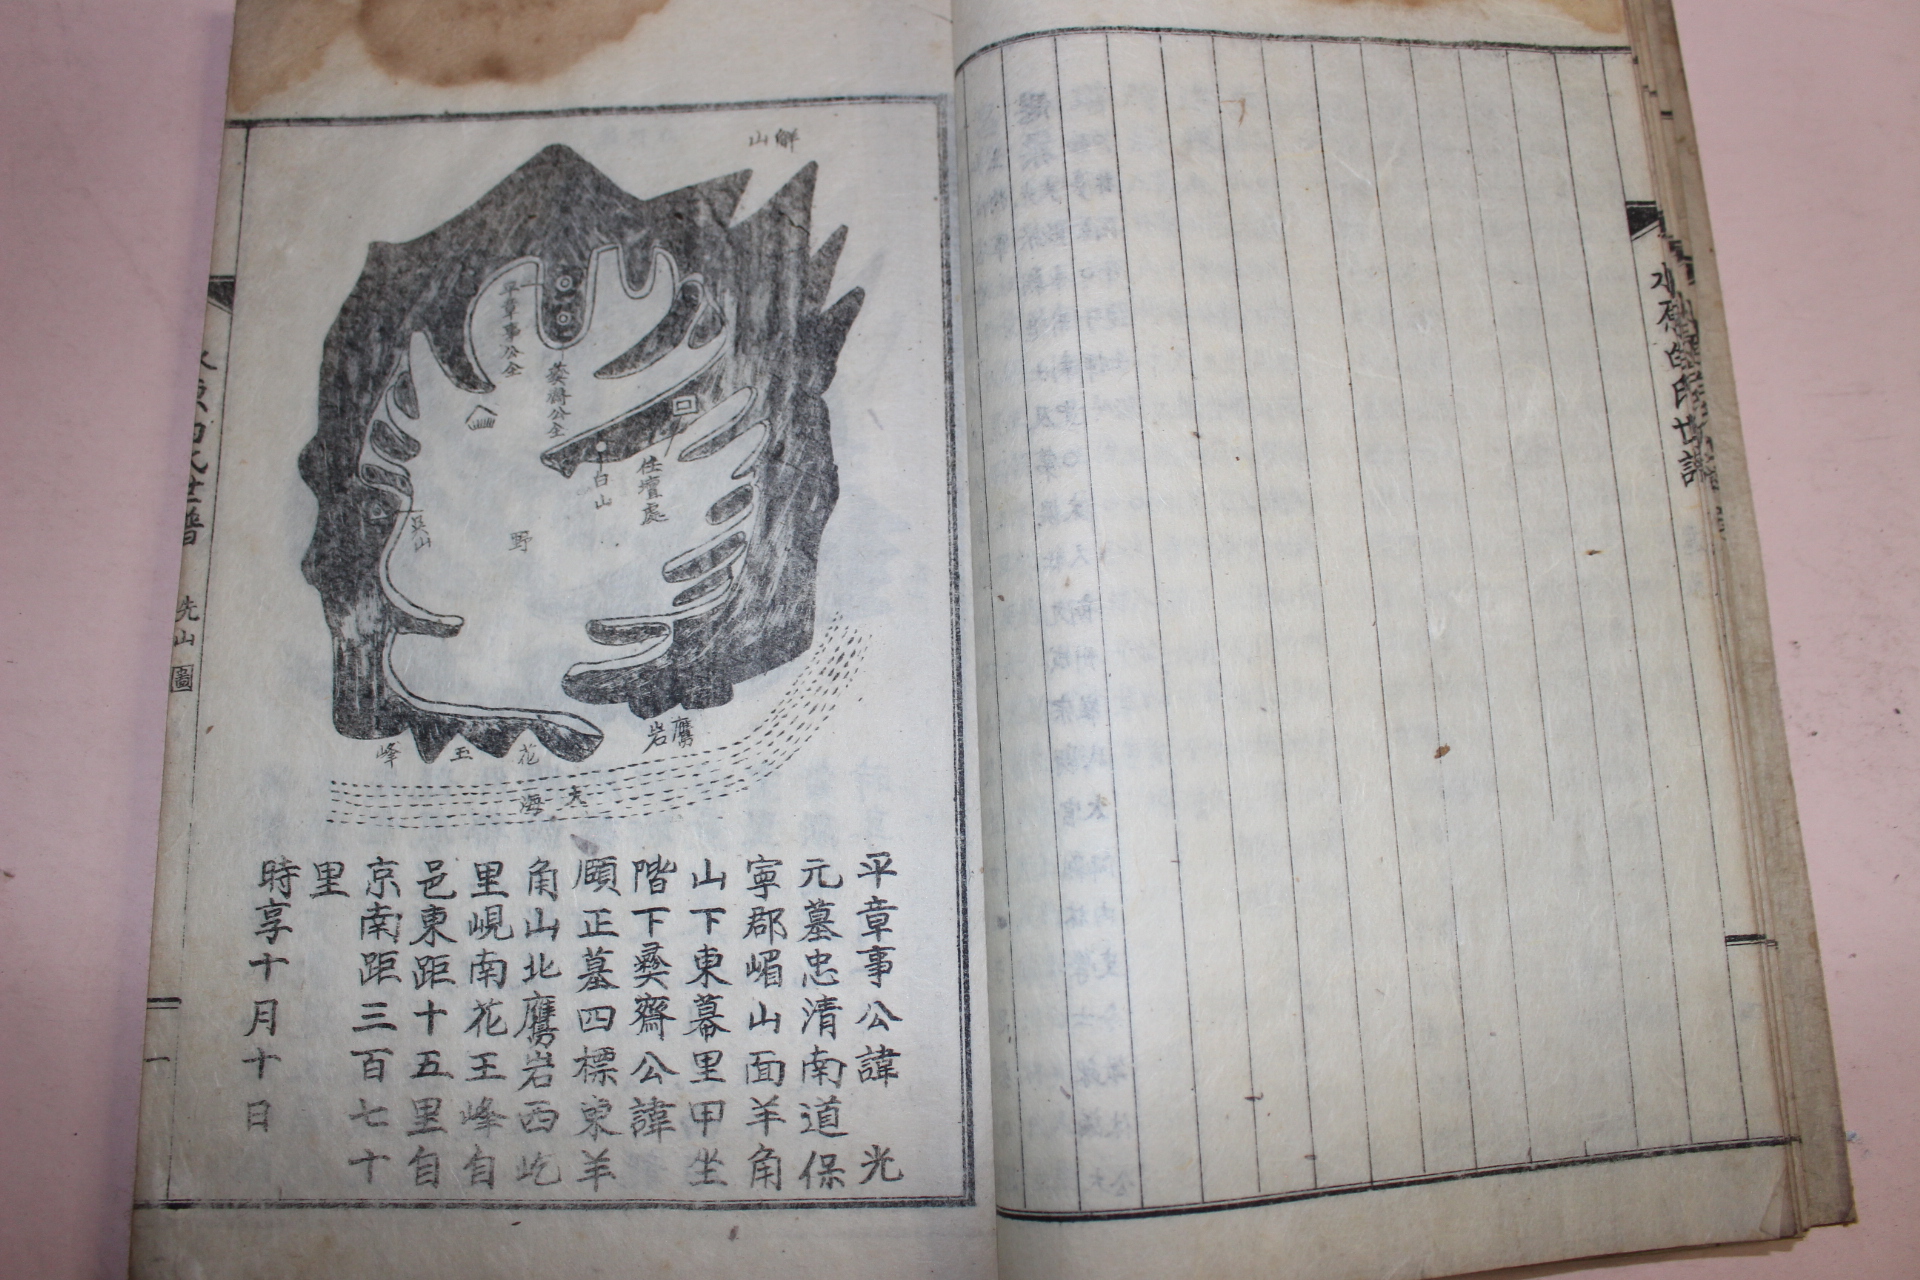 水原白氏世譜
解山
平章事公仝
彛齋公仝
白山
住壇處
吳山
野
鷹岩
花玉峰
大海
平章事公諱　光
元墓忠清南道保
寧郡嵋山面羊角
山下東幕里甲坐
階下彛齋公諱
頤正墓四標東羊
角山北鷹岩西屹
里峴南花王峰自
邑東距十五里自
京南距三百七十
里
時享十月十日
水原白氏世譜
先山圖
一